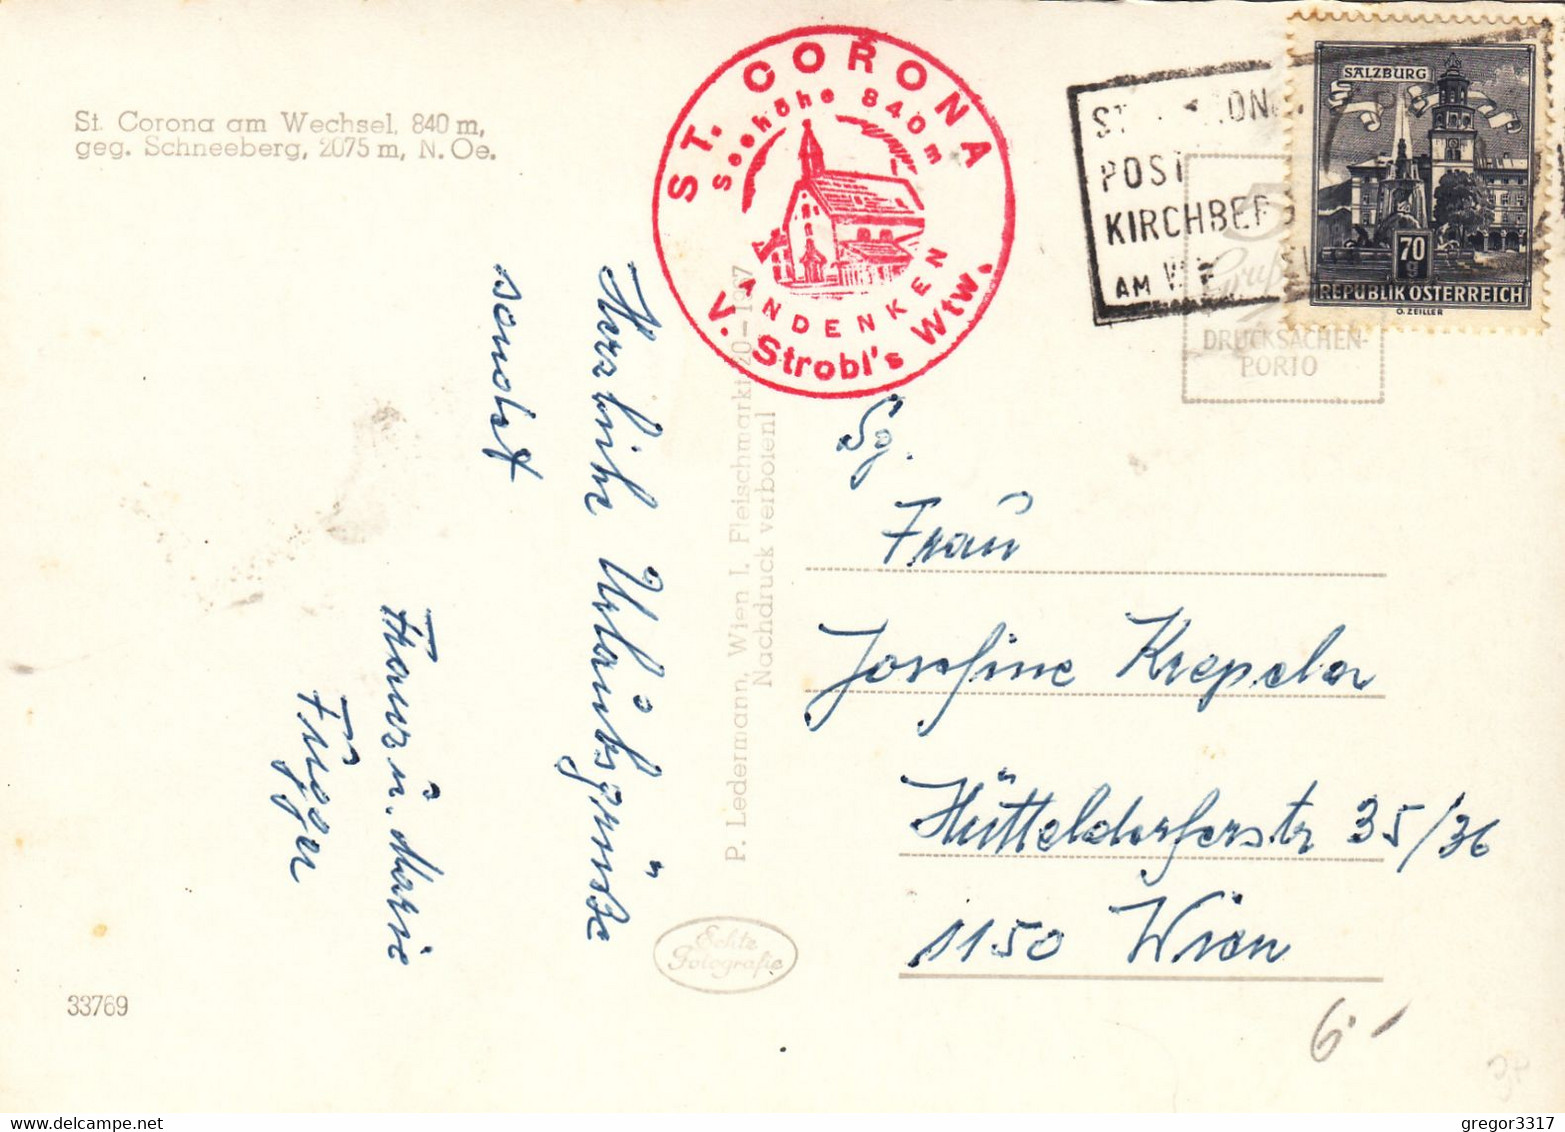 St. Corona am Wechsel, 840 m,
geg. Schneeberg, 2075 m, N. Oe.
ST. CORONA
Seehöhe 840 m
ANDENKEN
V. Strobl's Wtw.
POST
KIRCHBERG
AM
SALZBURG
70
g
REPUBLIK ÖSTERREICH
O. ZEILLER
5
DRUCKSACHEN-
PORTO
Herzliche Urlaubsgrüße
sendet
Franz u. Marie
P. Ledermann, Wien I. Fleischmarkt 20 - 1967
Nachdruck verboten!
Echte
Fotografie
Sg.
Frau
Josefine Krepela
Hütteldorferstr 35/36
1150 Wien
33769
6.-
gregor3317